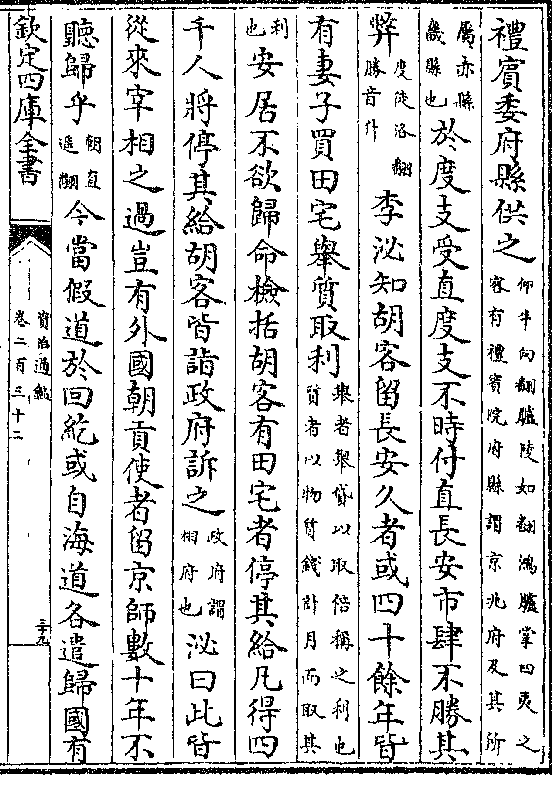 禮賓委府縣供之仰牛向翻臚陵如翻鴻臚掌四夷之客有禮賓院府縣謂京兆府及其所
屬赤縣畿縣也於度支受直度支不時付直長安市肆不勝其
弊度徒洛翻勝音升李泌知胡客留長安久者或四十餘年皆
有妻子買田宅舉質取利舉者舉貸以取倍稱之利也質者以物質錢計月而取其
利也安居不欲歸命檢括胡客有田宅者停其給凡得四
千人將停其給胡客皆詣政府訴之政府謂相府也泌曰此皆
從來宰相之過豈有外國朝貢使者留京師數十年不
聽歸乎朝直遥翻今當假道於回紇或自海道各遣歸國有
欽定四庫全書
資治通鑑
卷二百三十二
三九